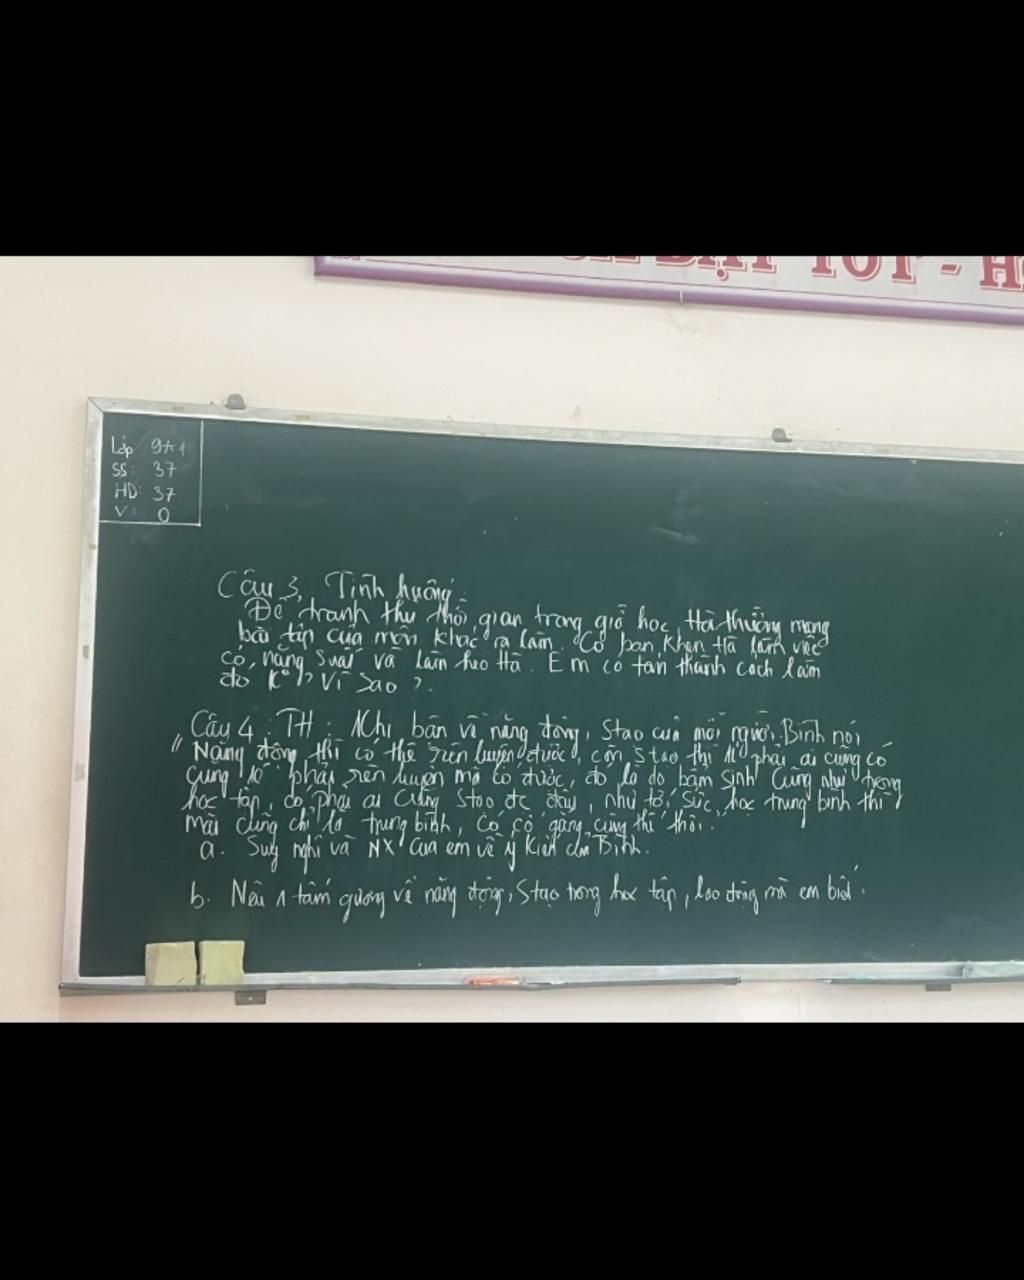 ĐẠT TỐT - H
Lớp: 9A1
SS: 37
HD: 37
V: 0
Câu 3, Tình huống:
Để tranh thủ thời gian trong giờ học, Hà thường mang
bài tập của môn khác ra làm. Có bạn khen Hà làm việc
có năng suất và làm theo Hà. Em có tán thành cách làm
đó ko? Vì sao?
Câu 4: TH: Khi bàn về năng động, stạo của mỗi người, Bình nói
"Năng động thì có thể rèn luyện được, còn stạo thì k phải ai cũng có
cũng ko phải rèn luyện mà có được, đó là do bẩm sinh. Cũng như trong
học tập, có phải ai cũng stạo đc đâu, như tớ sức học trung bình thì
mãi cũng chỉ là trung bình, có cố gắng cũng thế thôi."
a. Suy nghĩ và NX của em về ý kiến của Bình.
b. Nêu 1 tấm gương về năng động, stạo trong học tập, lao động mà em biết.